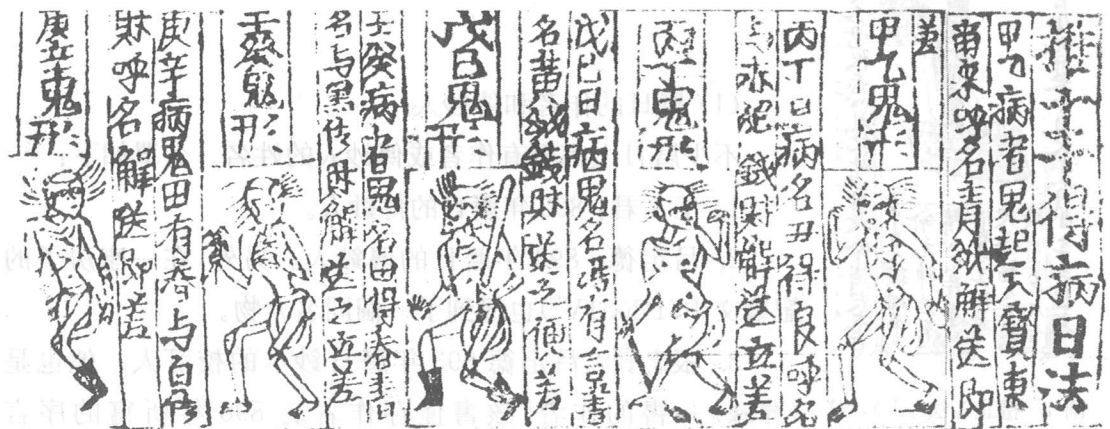 推十干得病日法
甲乙病者鬼起天賓東
來呼名青 財 送即
差
甲乙鬼形
丙丁日病名丑得 呼名
与赤 錢財解送立差
丙丁鬼形
戊己日病鬼名 有 書
名黄 錢財送之 差
戊己鬼形
壬癸病者鬼名田得春書
名与黑 財解送之立差
壬癸鬼形
庚辛病鬼田有春与白
財呼名解送即差
庚辛鬼形